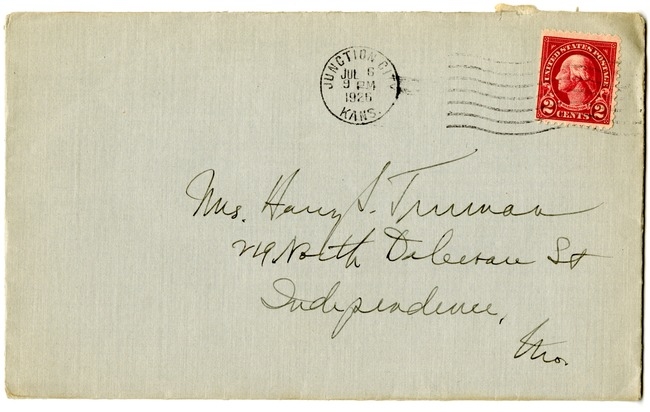 JUNCTION CITY
JUL 6
9 PM
1925
KANS.
UNITED STATES POSTAGE
2 CENTS 2
Mrs. Harry S. Truman
219 North Delaware St
Independence,
Mo.